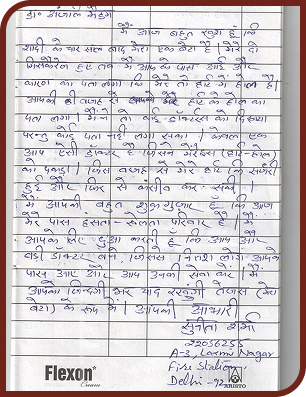 मैं आज बहुत खुश हूँ कि
शादी के चार साल बाद मेरा एक बेटा है। मेरे दो
मिसकैरेज हुए तब मैं आप के पास आई और
कारण का पता लगा कि मेरे तो हार्ट में होल है।
आपकी ही वजह से मेरे हार्ट के होल का
पता लगा। मैंने तो कई डाक्टरस को दिखाया
परन्तु कोई पता नहीं लगा सका। केवल एक
आप ऐसी डॉक्टर है जिसने मेरे हार्ट होल
को पकड़ा। जिस वजह से मेरे हार्ट की सर्जरी
हुई और फिर से कंसीव कर सकी।
मैं आपकी बहुत शुक्रगुजार हूँ कि आज
मेरे पास हंसता-खेलता परिवार है।
आपके लिए दुआ करती हूँ कि आप और
बड़ी डाक्टर बने, जिससे निराश लोग आपके
पास आए और आप उनकी सेवा करें। मैं
आपको जिन्दगी भर याद रखूंगी तेजस (मेरा
बेटा) के रूप में। आपकी आभारी
सुनीता शर्मा
22056255
A-3, Laxmi Nagar
Fire Station,
Delhi-92
Flexon
Cream
ARISTO